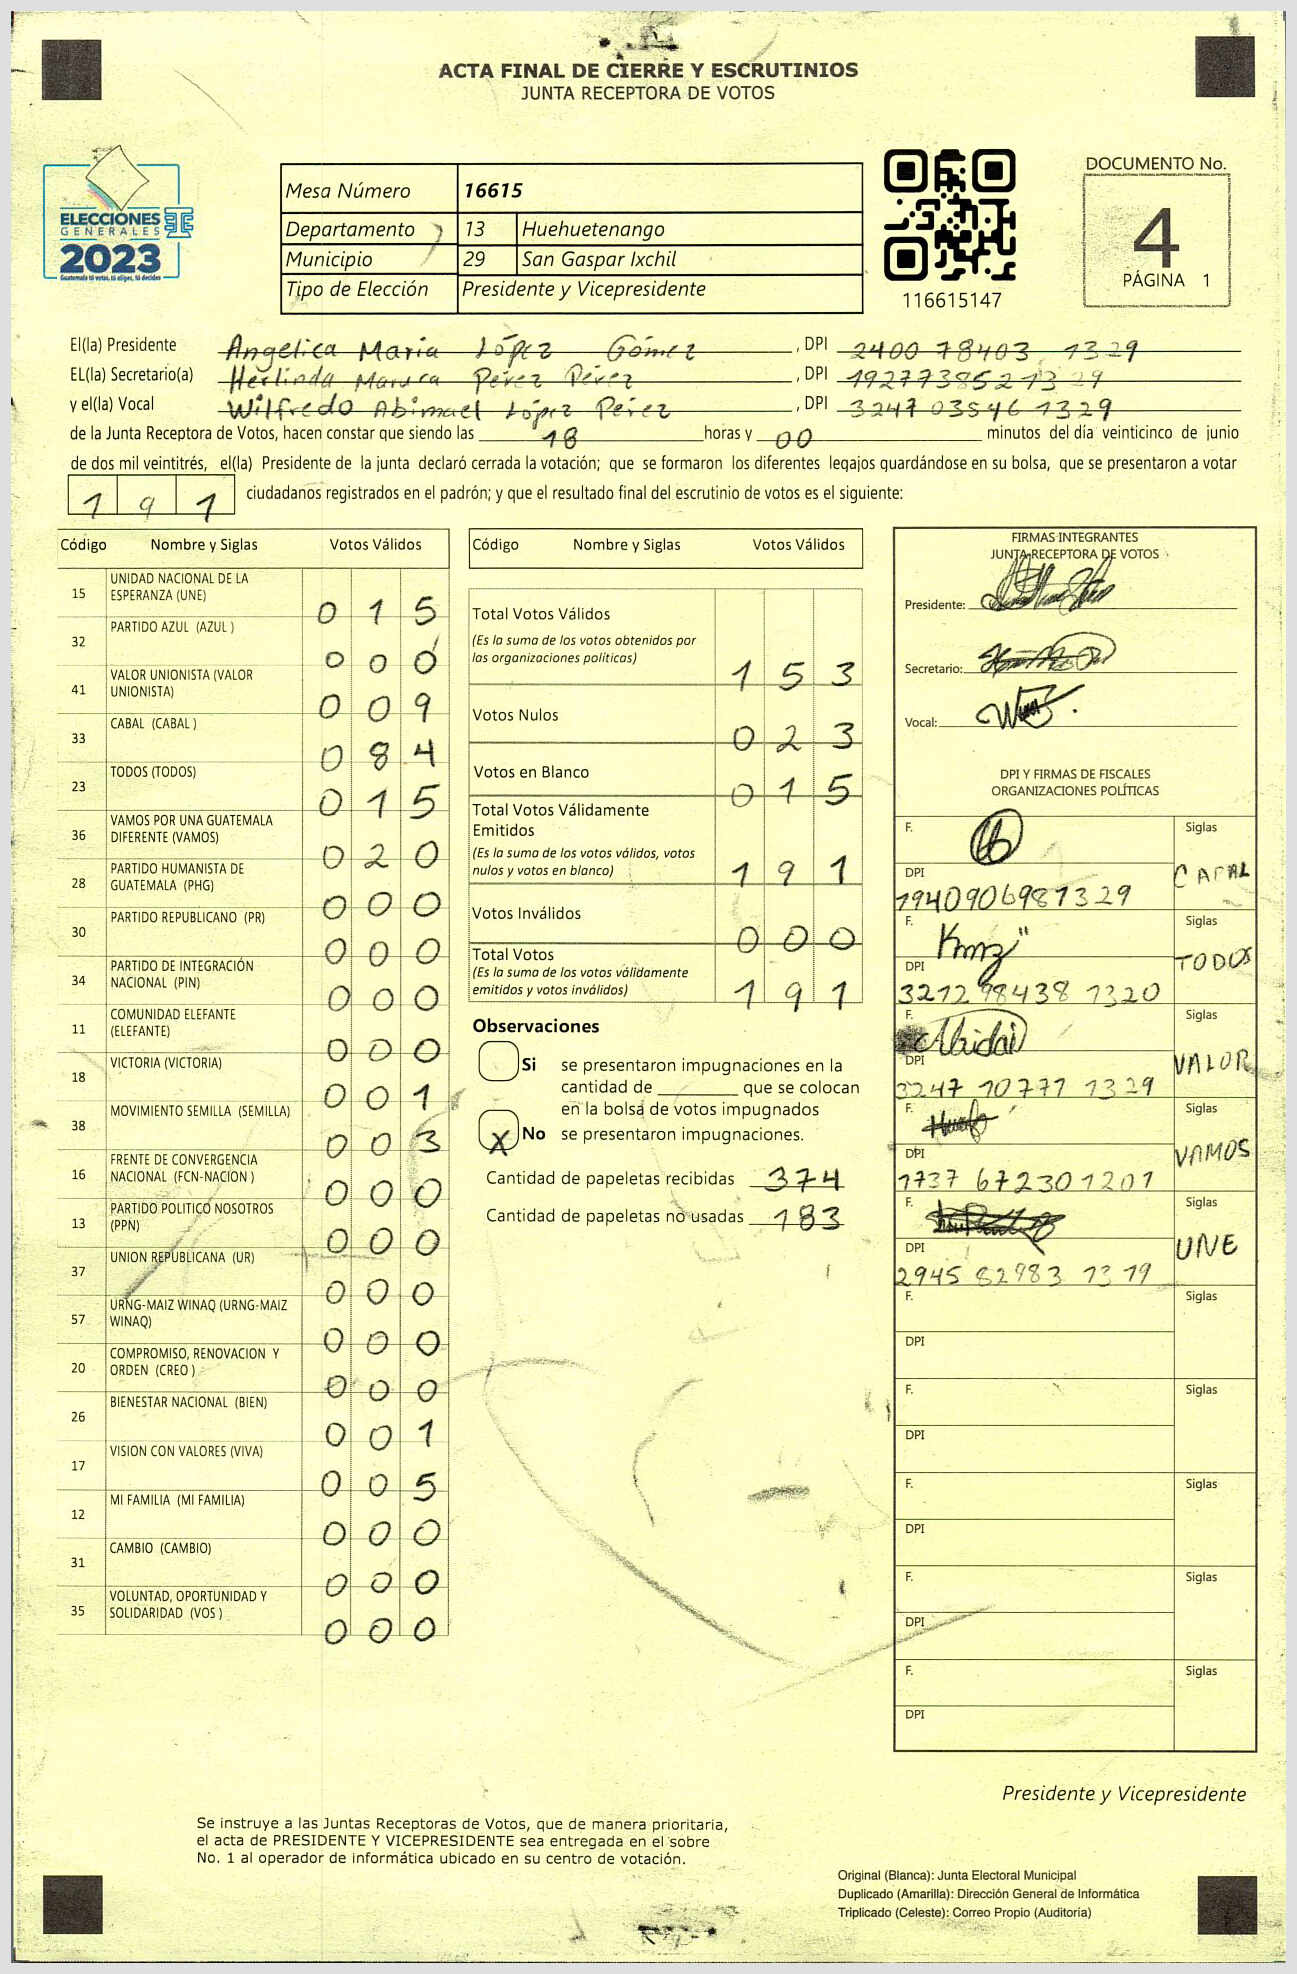 ACTA FINAL DE CIERRE Y ESCRUTINIOS
JUNTA RECEPTORA DE VOTOS
ELECCIONES
GENERALES
2023
Guatemala tú votas, tú eliges, tú decides
Mesa Número 16615
Departamento 13 Huehuetenango
Municipio 29 San Gaspar Ixchil
Tipo de Elección Presidente y Vicepresidente
116615147
DOCUMENTO No.
4
PÁGINA 1
El(la) Presidente Angelica Maria López Gómez, DPI 2400 78403 1329
EL(la) Secretario(a) Herlinda Pérez Pérez, DPI 192773852 1329
y el(la) Vocal Wilfredo Abimael López Pérez, DPI 3247 03546 1329
de la Junta Receptora de Votos, hacen constar que siendo las 18 horas y 00 minutos del día veinticinco de junio
de dos mil veintitrés, el(la) Presidente de la junta declaró cerrada la votación; que se formaron los diferentes legajos guardándose en su bolsa, que se presentaron a votar
191 ciudadanos registrados en el padrón; y que el resultado final del escrutinio de votos es el siguiente:
Código Nombre y Siglas Votos Válidos
15 UNIDAD NACIONAL DE LA ESPERANZA (UNE) 015
32 PARTIDO AZUL (AZUL ) 000
41 VALOR UNIONISTA (VALOR UNIONISTA) 009
33 CABAL (CABAL ) 084
23 TODOS (TODOS) 015
36 VAMOS POR UNA GUATEMALA DIFERENTE (VAMOS) 020
28 PARTIDO HUMANISTA DE GUATEMALA (PHG) 000
30 PARTIDO REPUBLICANO (PR) 000
34 PARTIDO DE INTEGRACIÓN NACIONAL (PIN) 000
11 COMUNIDAD ELEFANTE (ELEFANTE) 000
18 VICTORIA (VICTORIA) 001
38 MOVIMIENTO SEMILLA (SEMILLA) 003
16 FRENTE DE CONVERGENCIA NACIONAL (FCN-NACION ) 000
13 PARTIDO POLITICO NOSOTROS (PPN) 000
37 UNION REPUBLICANA (UR) 000
57 URNG-MAIZ WINAQ (URNG-MAIZ WINAQ) 000
20 COMPROMISO, RENOVACION Y ORDEN (CREO ) 000
26 BIENESTAR NACIONAL (BIEN) 001
17 VISION CON VALORES (VIVA) 005
12 MI FAMILIA (MI FAMILIA) 000
31 CAMBIO (CAMBIO) 000
35 VOLUNTAD, OPORTUNIDAD Y SOLIDARIDAD (VOS ) 000
Código Nombre y Siglas Votos Válidos
Total Votos Válidos
(Es la suma de los votos obtenidos por
las organizaciones políticas) 153
Votos Nulos 023
Votos en Blanco 015
Total Votos Válidamente
Emitidos
(Es la suma de los votos válidos, votos
nulos y votos en blanco) 191
Votos Inválidos 000
Total Votos
(Es la suma de los votos válidamente
emitidos y votos inválidos) 191
Observaciones
Si se presentaron impugnaciones en la
cantidad de ________ que se colocan
en la bolsa de votos impugnados
X No se presentaron impugnaciones.
Cantidad de papeletas recibidas 374
Cantidad de papeletas no usadas 183
FIRMAS INTEGRANTES
JUNTA RECEPTORA DE VOTOS
Presidente:
Secretario:
Vocal:
DPI Y FIRMAS DE FISCALES
ORGANIZACIONES POLÍTICAS
F. Siglas
DPI CABAL
1940906981329
F. Siglas
DPI TODOS
3212 98438 1320
F. Siglas
DPI VALOR
3247 10777 1329
F. Siglas
DPI VAMOS
1737 67230 1201
F. Siglas
DPI UNE
2945 82983 1319
F. Siglas
DPI
F. Siglas
DPI
F. Siglas
DPI
F. Siglas
DPI
F. Siglas
DPI
Presidente y Vicepresidente
Se instruye a las Juntas Receptoras de Votos, que de manera prioritaria,
el acta de PRESIDENTE Y VICEPRESIDENTE sea entregada en el sobre
No. 1 al operador de informática ubicado en su centro de votación.
Original (Blanca): Junta Electoral Municipal
Duplicado (Amarilla): Dirección General de Informática
Triplicado (Celeste): Correo Propio (Auditoria)